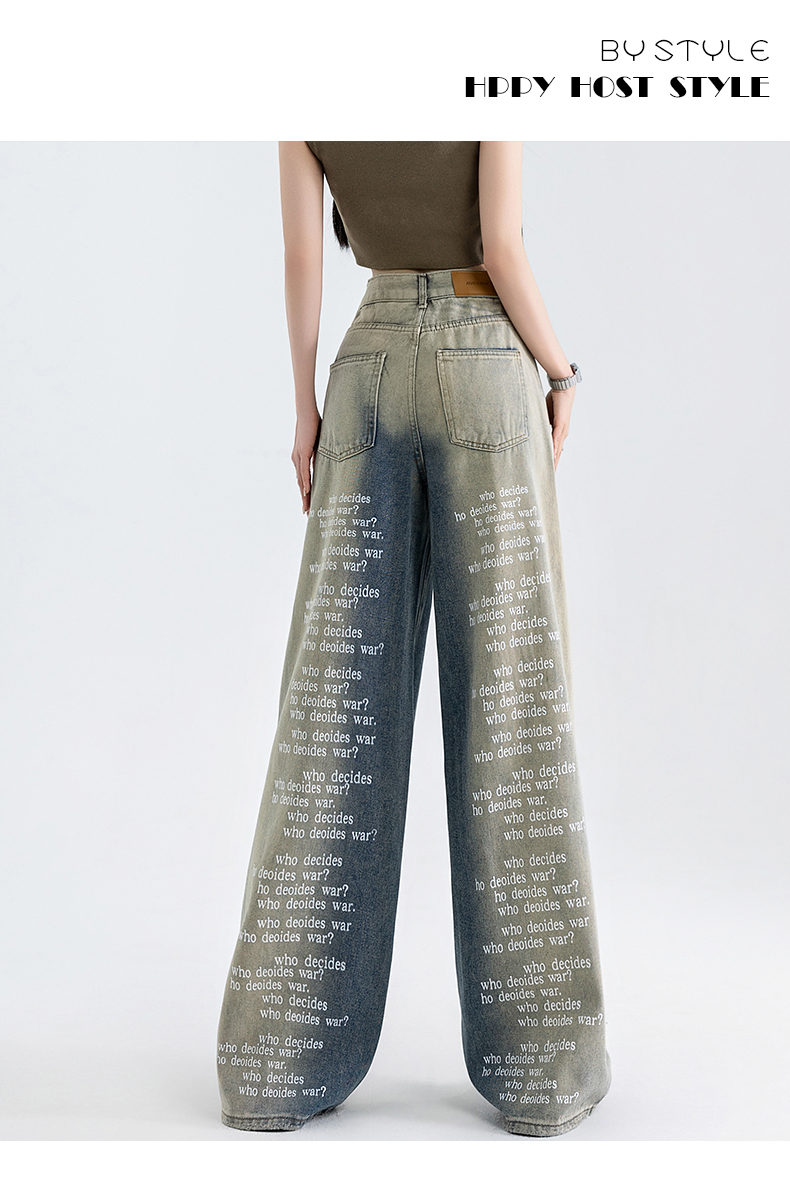 BY STYLE
HPPY HOST STYLE
who decides
ho deoides war?
ho deoides war?
who deoides war.
who deoides war
who deoides war?
who decides
who deoides war?
ho deoides war.
who decides
who deoides war?
who decides
deoides war?
ho deoides war?
who deoides war.
who deoides war
who deoides war?
who decides
who deoides war?
ho deoides war.
who decides
who deoides war?
who decides
deoides war?
ho deoides war?
who deoides war.
who deoides war
who deoides war?
who decides
who deoides war?
ho deoides war.
who decides
who deoides war?
who decides
who deoides war?
ho deoides war.
who decides
who deoides war?
who decides
ho deoides war?
ho deoides war?
who deoides war
who deoides
who deoides war?
who decide
who deoides war?
ho deoides war.
who decides
who deoides wa
who decides
deoides war?
ho deoides war?
who deoides war.
who deoides war
who deoides war?
who decides
who deoides war?
ho deoides war.
who decides
who deoides war
who decides
ho deoides war?
ho deoides war?
who deoides war.
who deoides war
who deoides war?
who decides
who deoides war?
ho deoides war.
who decides
who deoides war?
who decides
who deoides war?
ho deoides war.
who decides
who deoides war?